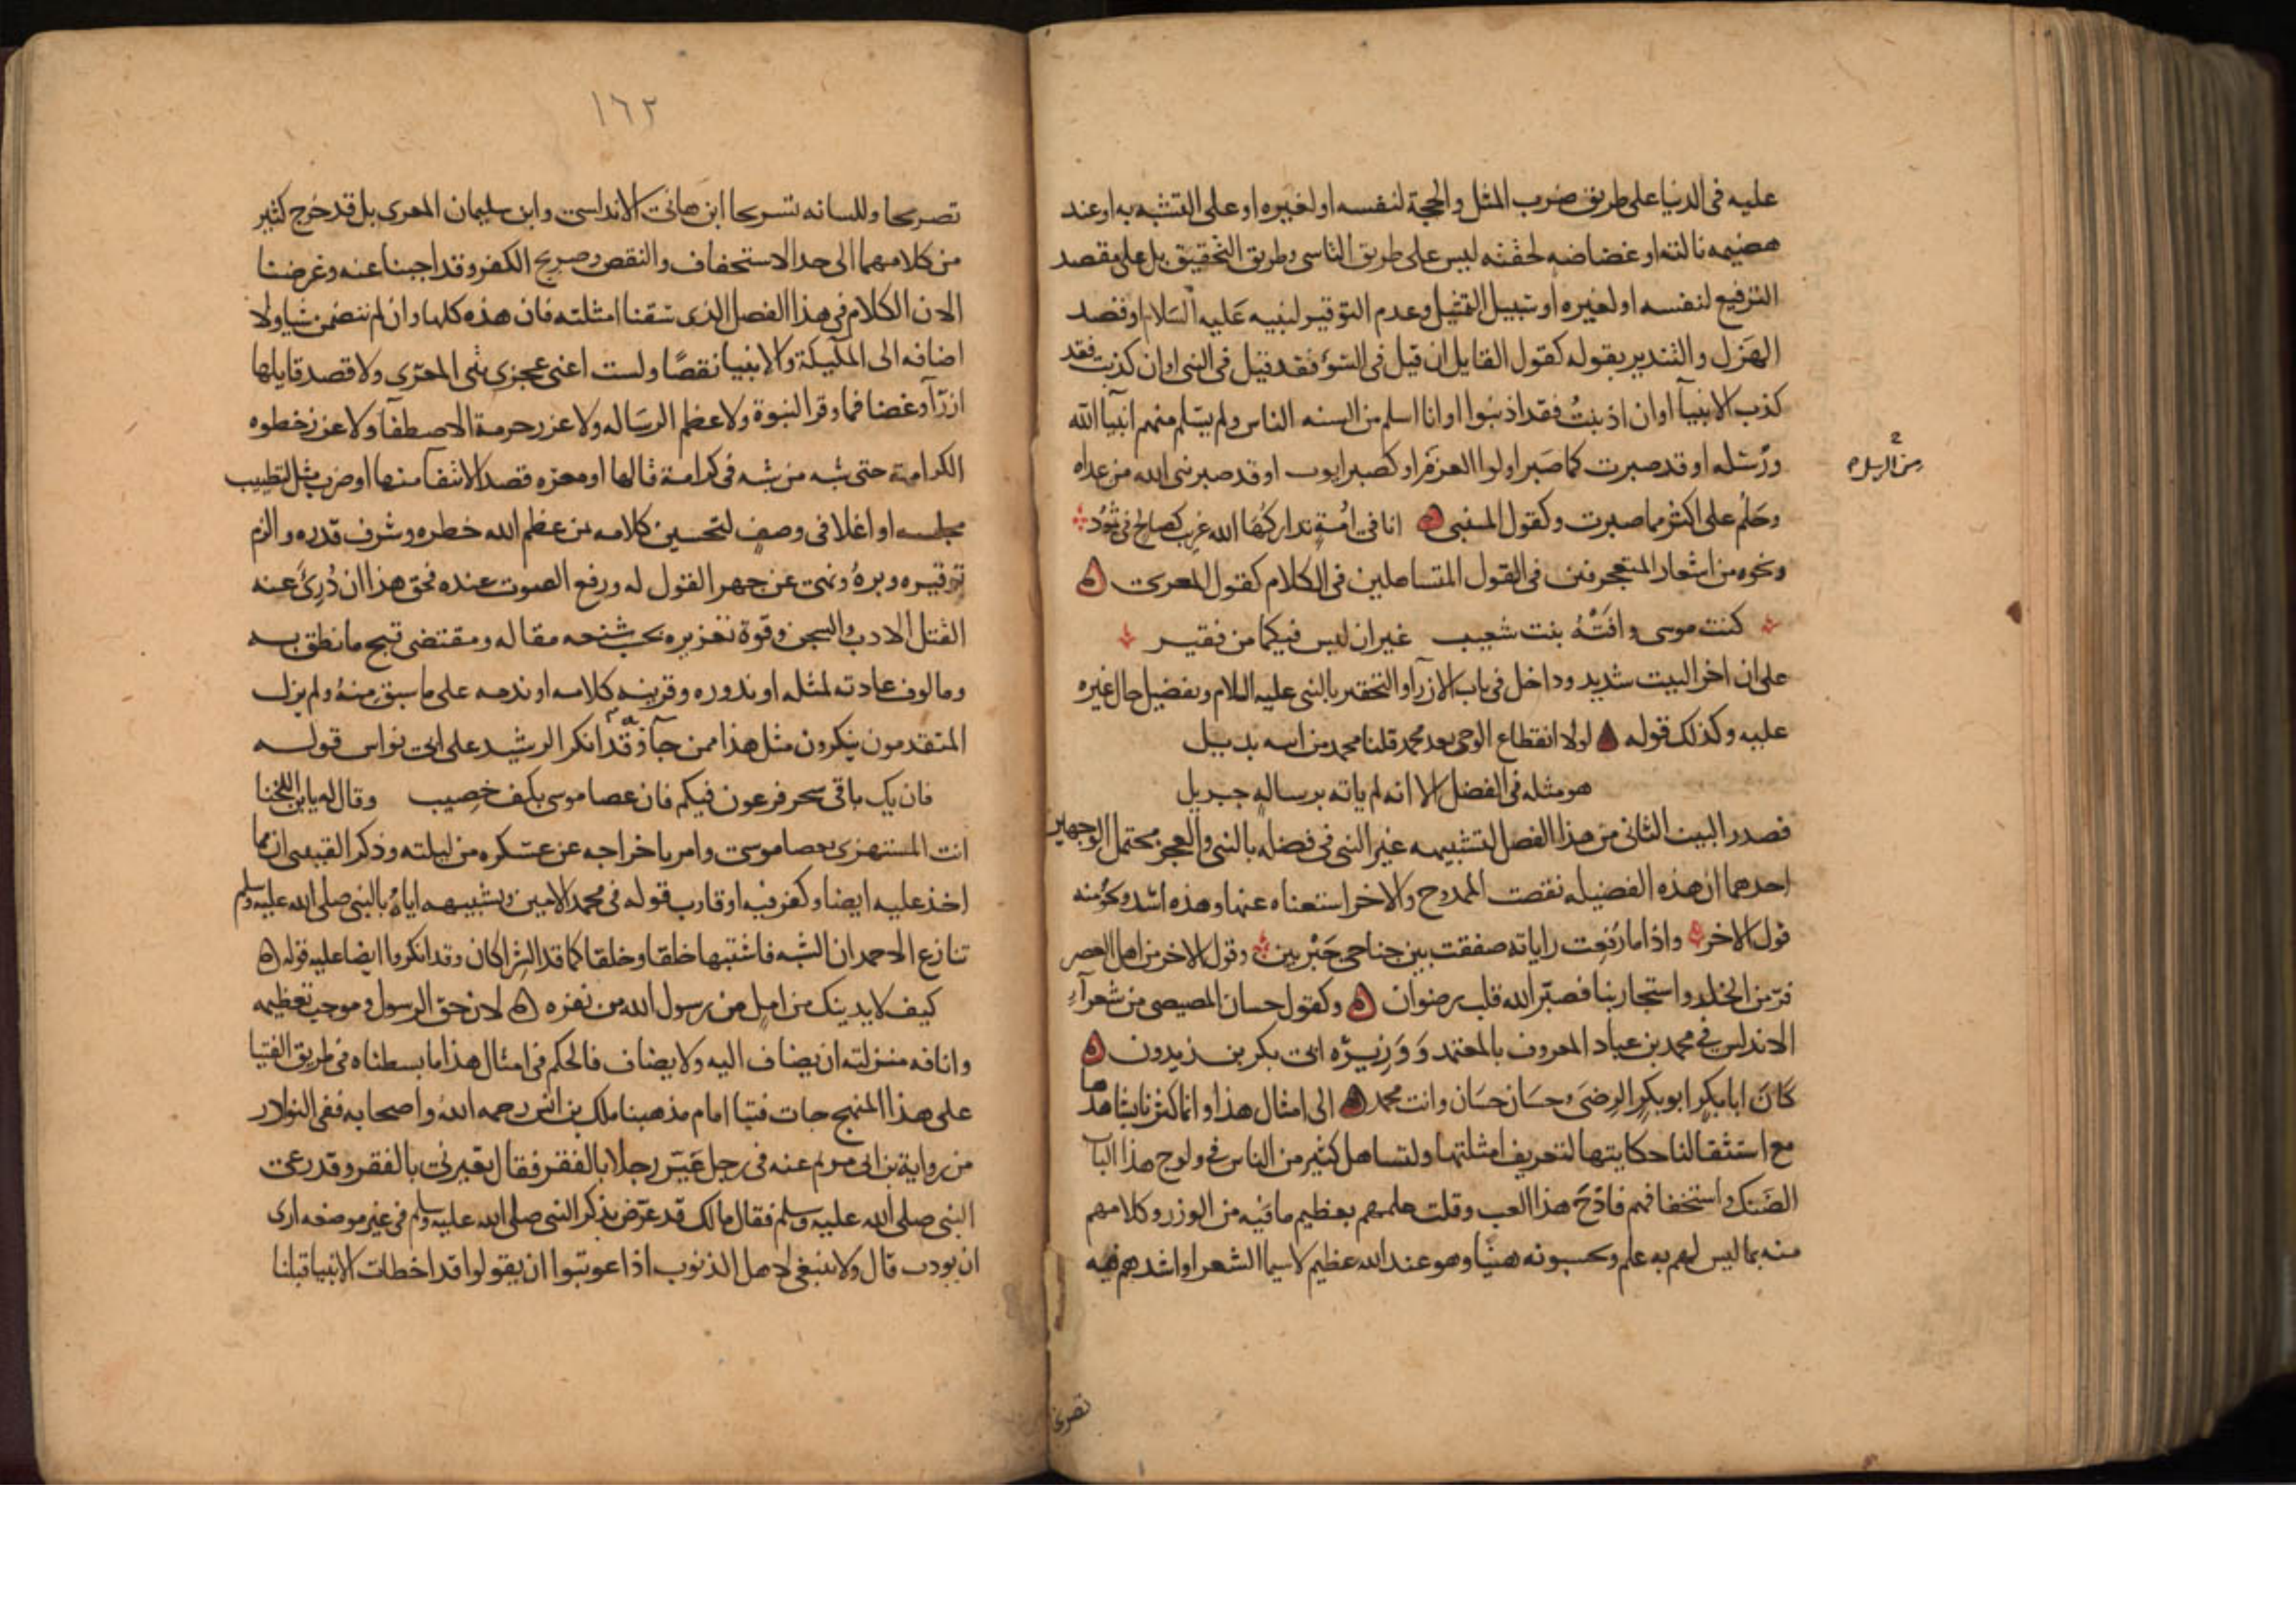 عليه فى الدنيا على طريق ضرب المثل والحجة لنفسه او لغيره او على التشبه به او عند
هضيمه نالته او غضاضه لحقته ليس على طريق التاسى وطريق التحقيق بل على مقصد
الترفيع لنفسه او لغيره او سبيل التمثيل وعدم التوقير لنبيه عَليه السَلام او قصد
الهَزل والتندير بقوله كقول القايل ان قيل فى السّوء فقد قيل فى النبى او ان كذبت فقد
كذب الانبيآ او ان اذنبتُ فقد اذنبوا او انا اسلم من السنه الناس ولم يسَلم منهم انبيآ الله
ورُسُله او قد صبرت كما صَبر اولوا العزم او كصبر ايوب او قد صبر نبى الله من عداه
من الرسل
وحَلُم على اكثر مما صبرت وكقول المتنبى ه انا فى اُمّةٍ تداركَها الله غريب كصالح فى ثمُود
ونحوه من اشعار المتعجرفين فى القول المتساهلين فى الكلام كقول المعرى ه
كنت موسى وافَتْهُ بنت شعيب غير ان ليس فيكما من فقير
على ان اخر البيت شديد وداخل فى باب الازرآ والتحقير بالنبى عليه السلام وتفضيل حال غيره
عليه وكذلك قوله ه لولا انقطاع الوحى بعد محمد قلنا محمد من ابيه بديل
هو مثله فى الفضل الا انه لم ياته برسالهٍ جبريل
فصدر البيت الثانى من هذا الفصل لتشبيهه غير النبى فى فضله بالنبى والعجز محتمل الوجهين
احدهما ان هذه الفضيله نقصت الممدوح والاخر استغناه عنها وهذه اشد ونحو منه
قول الاخر واذا ما رُفعت راياته صفقت بين جناحى جَبْرِيين وقول الاخر من اهل العصر
فرّ من الخلد واستجار بنا فصبّر الله قلب رضوان ه وكقول حسان المصيصى من شعرآءِ
الاندلس فى محمد بن عباد المعروف بالمعتمد وَوَزِيرُه ابى بكر بن زيدون ه
كَانَ ابا بكرٍ ابو بكرِ الرِضَى وحسَان حسَان وانت محمد ه الى امثال هذا وانما كثرنا بشاهدها
مع استثقالنا حكايتها لتعريف امثلتها ولتساهل كثير من الناس فى ولوج هذا الباب
الضَنك واستخفافهم فادح هذا العب وقلت علمهم بعظيم ما فيه من الوزر وكلامهم
منه بما ليس لهم به علم ويحسبونه هينًا وهو عند الله عظيم لاسيما الشعرا واشدهم فيه
تصريحا
١٦٢
تصريحا وللسانه تسريحا ابن هانى الاندلسى وابن سليمان المعرى بل قد خرج كثير
من كلامهما الى حد الاستخفاف والنقص وصريح الكفر وقد اجبنا عنه وغرضنا
الان الكلام فى هذا الفصل الذى سقنا امثلته فان هذه كلها وان لم تتضمن سَبا ولا
اضافه الى الملآيكة والانبيا نقصًا ولست اعنى عجزى بيتى المعرّى ولا قصد قايلها
ازرآ وغضا فما وقر النبوة ولا عظم الرسَاله ولا عزر حرمة الاصطفآ ولا عزز حظوه
الكرامة حتى شبه من شبه فى كرامة نالها او معزه قصد الانتفآ منها او ضرب مثل لتطييب
مجلسه او اغلا فى وصفٍ لتحسين كلامه من عظم الله خطره وشرف قدره والزم
توقيره وبرهُ ونهى عن جهر القول له ورفع الصوت عنده فحق هذا ان دُرِئَ عنه
القتل الادب والسجن وقوة تعزيره بحسب شنعه مقاله ومقتضى قبح ما نطق به
ومالوف عادته لمثله او ندوره وقرينه كلامه او ندمه على ما سبق منهُ ولم يزل
المتقدمون ينكرون مثل هذا ممن جآ به وقد انكر الرشيد على ابى نواس قوله
فان يك باقى سحر فرعون فيكم فان عصا موسى بكف خصِيب وقال له يابن اللخنا
انت المستهزى بعصا موسى وامر باخراجه عن عسكره من ليلته وذكر القتيبى ان مما
اخذ عليه ايضا وكفر فيه او قارب قوله فى محمد الامين وتشبيهه اياهُ بالنبى صلى الله عليه وسلم
تنازع الاحمدان الشبه فاشتبها خلقا وخلقا كما قد الشراكان وقد انكروا ايضا عليه قوله ه
كيف لا يدينك من املٍ من رسول الله من نفره ه لان حق الرسول وموجب تعظيمه
وانافه منزلته ان يضاف اليه ولا يضاف فالحكم فى امثال هذا ما بسطناه فى طريق الفتيا
على هذا المنهج جات فتيا امام مذهبنا ملك بن انس رحمه الله واصحابه ففى النوادر
من رواية بن ابى مريم عنه فى رجل عَيّر رجلا بالفقر فقال تعيرنى بالفقر وقد رعى
النبى صلى الله عليه وسلم فقال مالك قد عرّض بذكر النبى صلى الله عليه وسلم فى غير موضعه ارى
ان يودب قال ولا ينبغى لاهل الذنوب اذا عوتبوا ان يقولوا قد اخطات الانبيا قبلنا